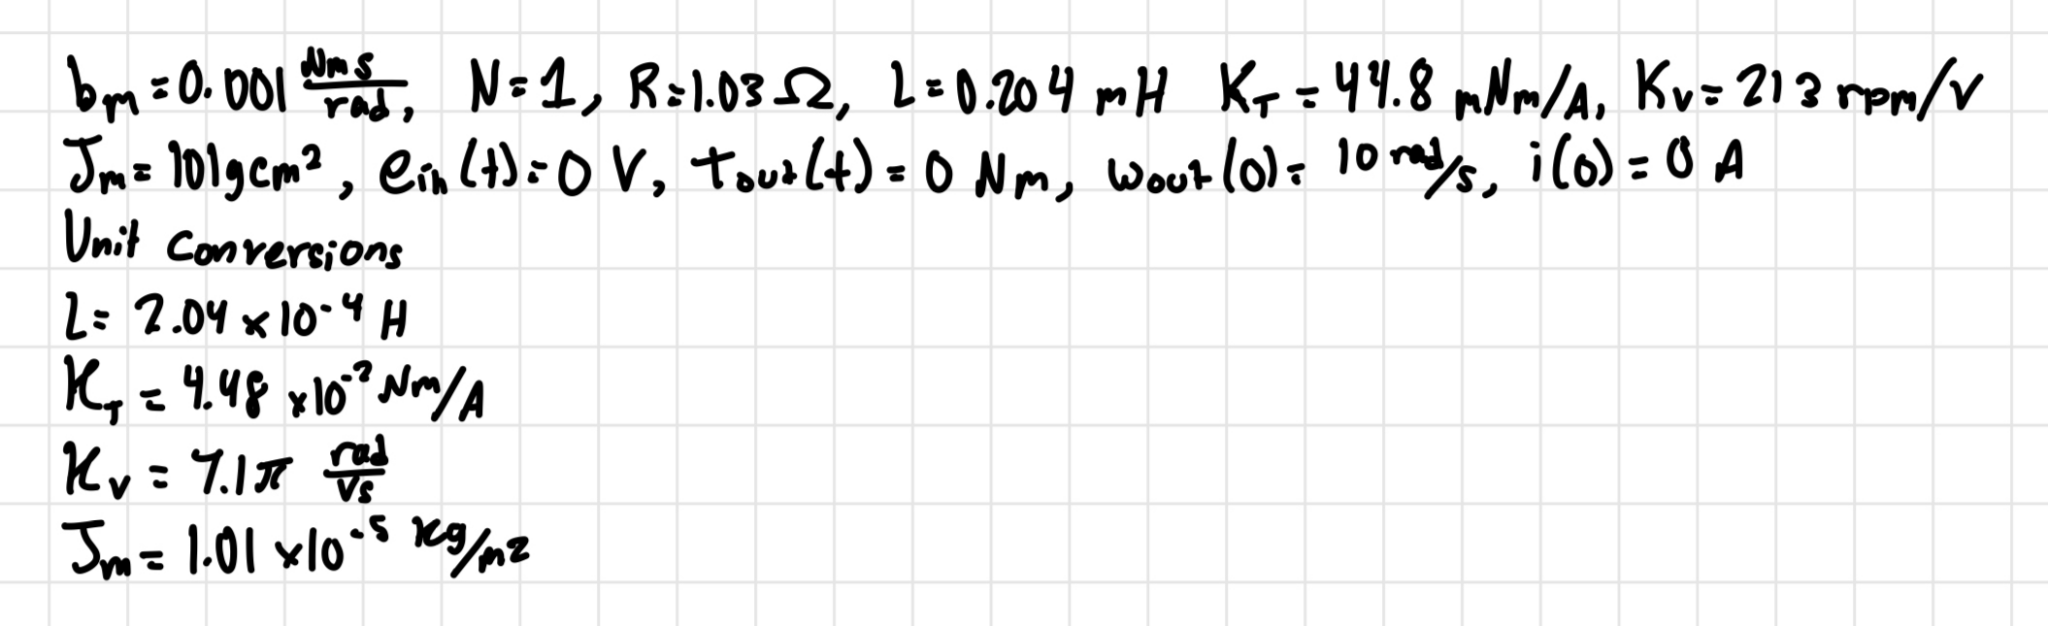 bm = 0.001 Nms/rad, N = 1, R = 1.03 Ω, L = 0.204 mH KT = 44.8 mNm/A, Kv = 213 rpm/V
Jm = 101gcm², ein(t) = 0 V, Tout(t) = 0 Nm, wout(0) = 10 rad/s, i(0) = 0 A
Unit Conversions
L = 2.04 × 10⁻⁴ H
KT = 4.48 × 10⁻² Nm/A
Kv = 7.1π rad/Vs
Jm = 1.01 × 10⁻⁵ kg/m²